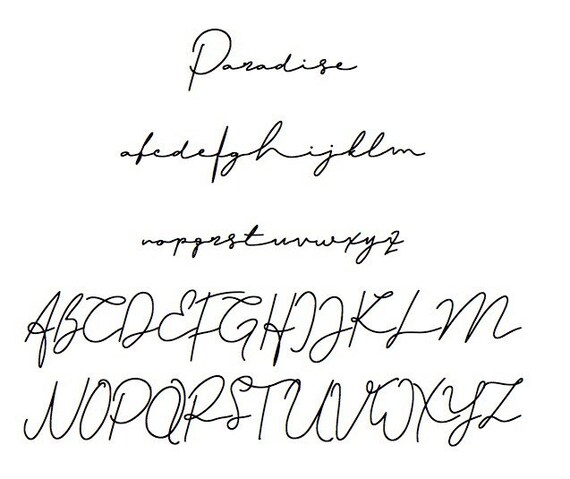 Paradise
abcdefghijklm
nopqrstuvwxyz
ABCDEFGHIJKLM
NOPQRSTUVWXYZ